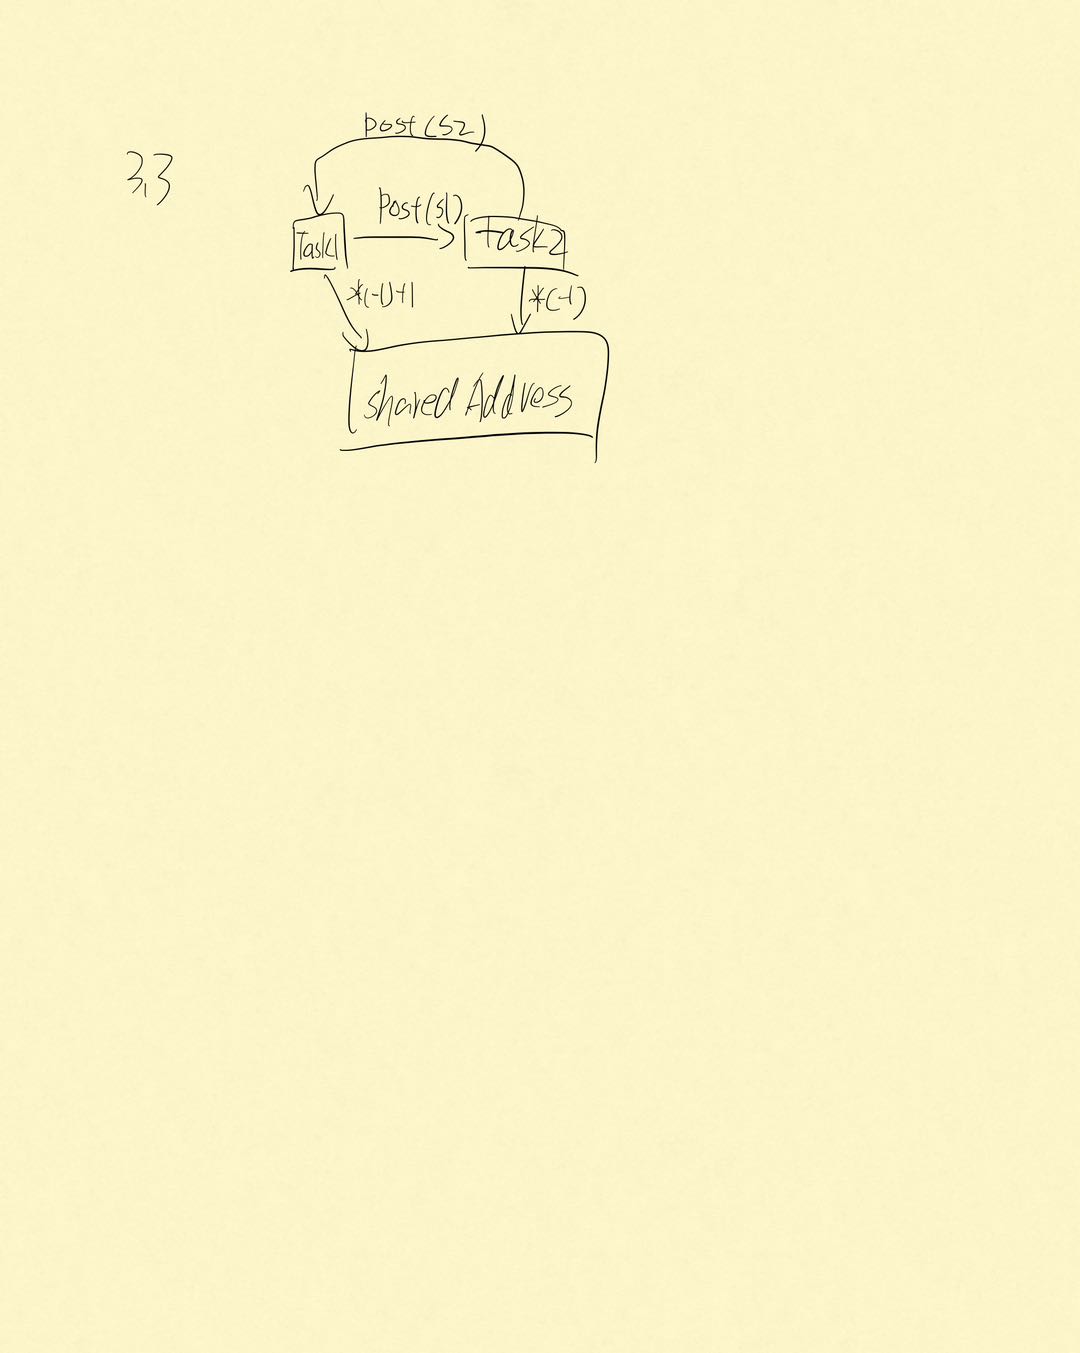 post(s2)
3.3
post(s1)
Task1
task2
*(-1)+1
*(-1)
shared Address